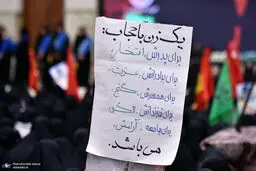 یک زن با حجاب:
برای پدرش، افتخار،
برای برادرش، عزت،
برای همسرش، گنج،
برای فرزندانش، الگو،
برای جامعه، آرامش،
می باشد.